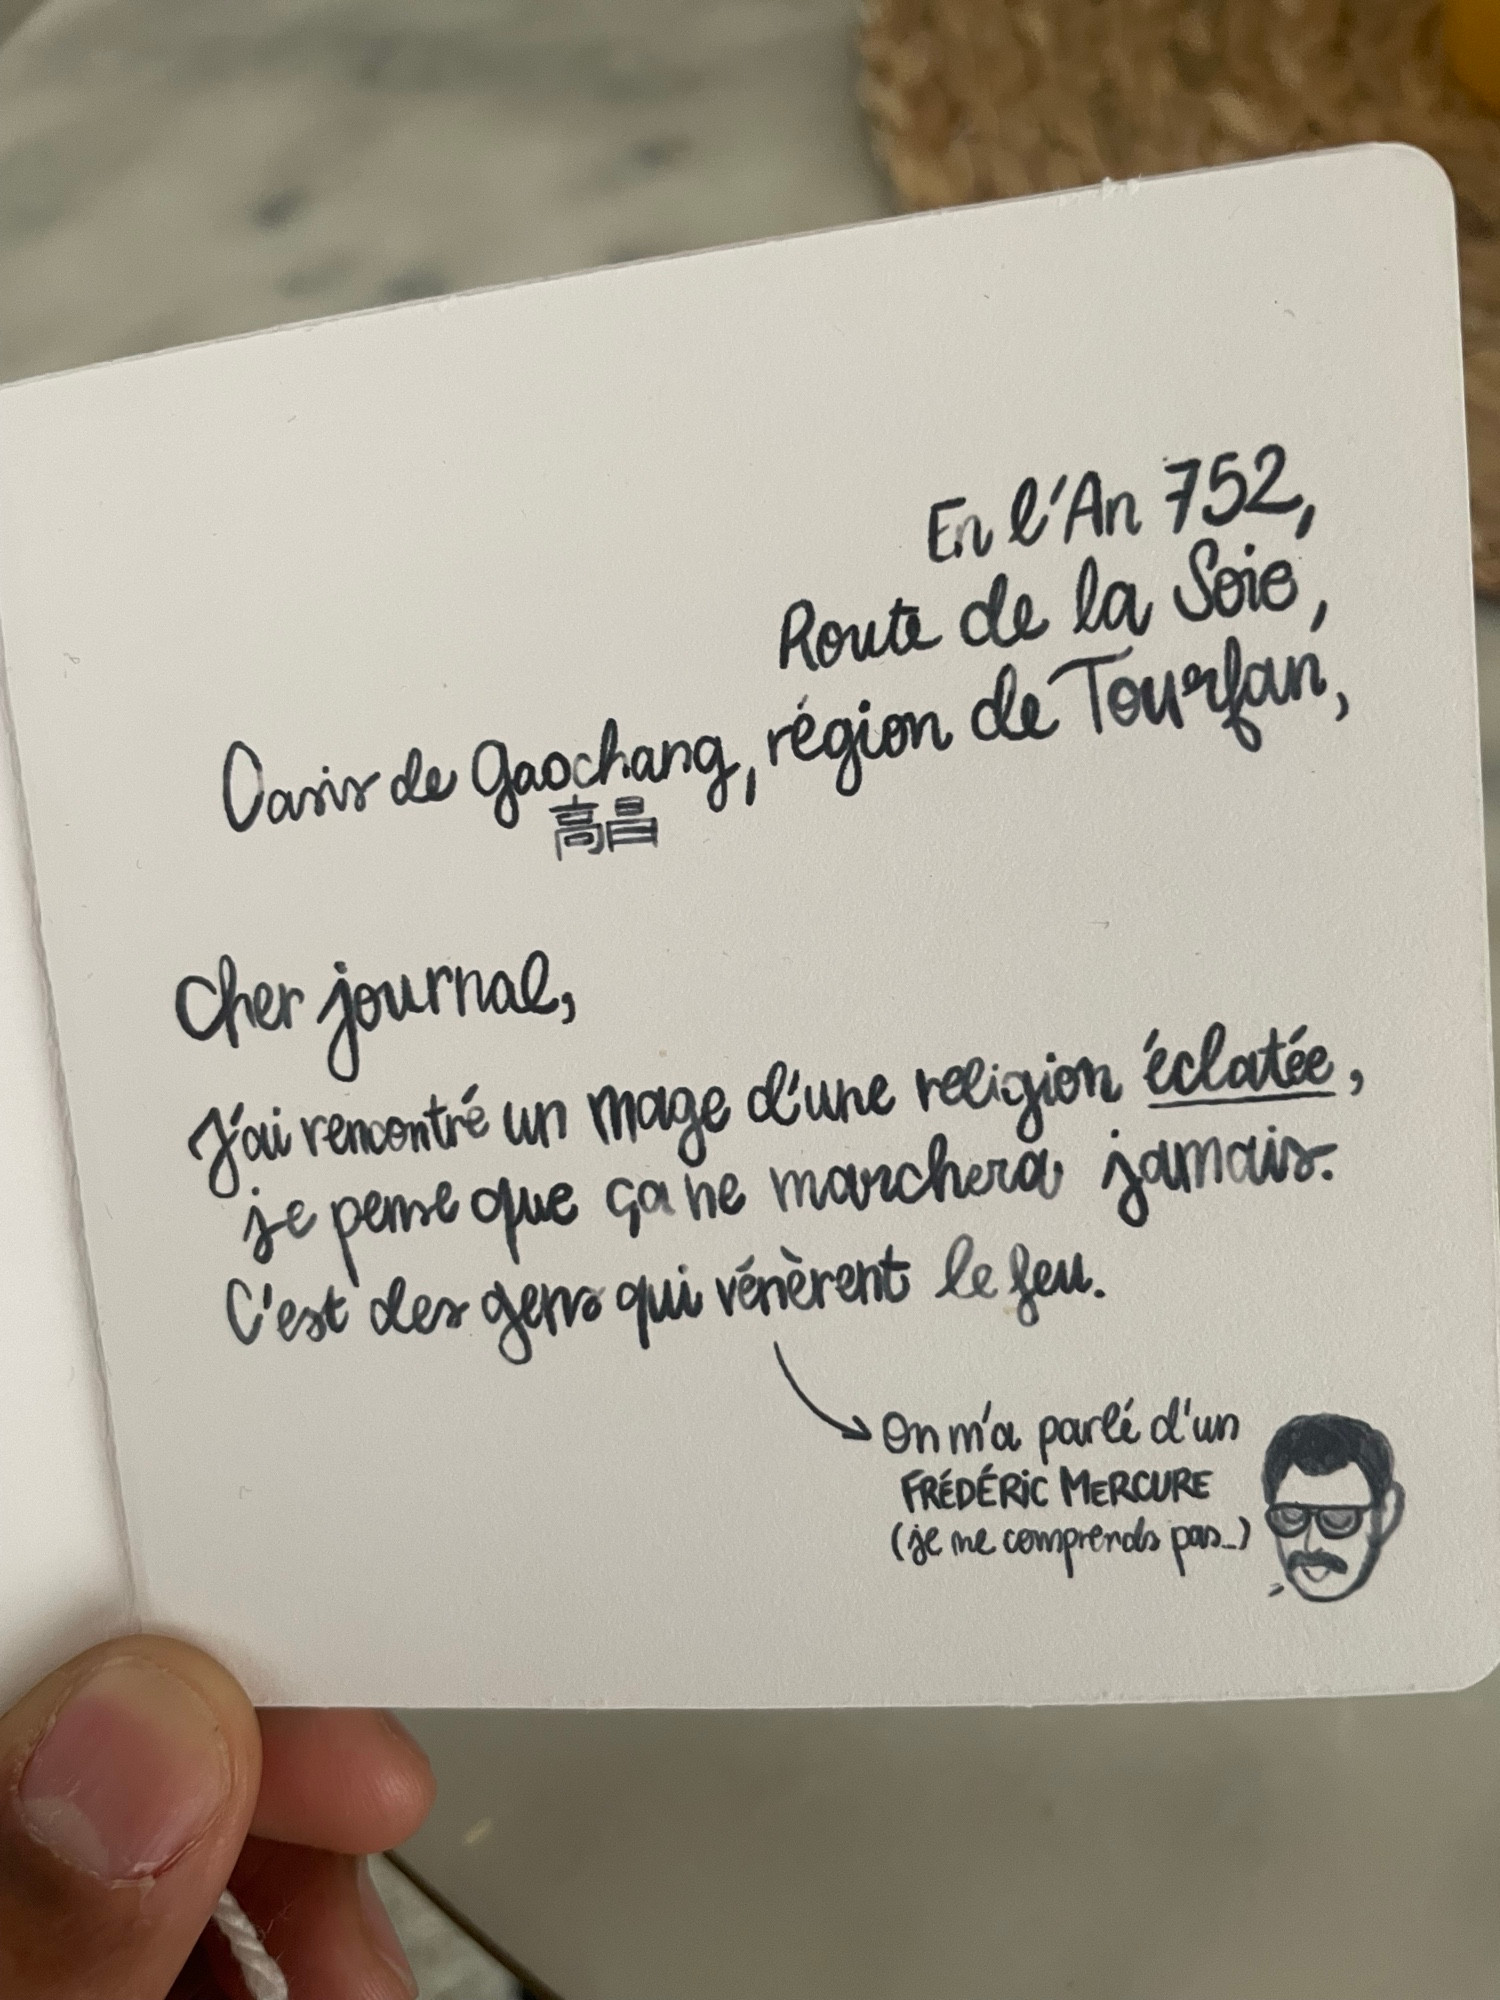 En l'An 752,
Route de la Soie,
Oasis de Gaochang, région de Tourfan,
高昌
Cher journal,
J'ai rencontré un mage d'une religion éclatée,
je pense que ça ne marchera jamais.
C'est des gens qui vénèrent le feu.
On m'a parlé d'un
FRÉDÉRIC MERCURE
(je me comprends pas...)